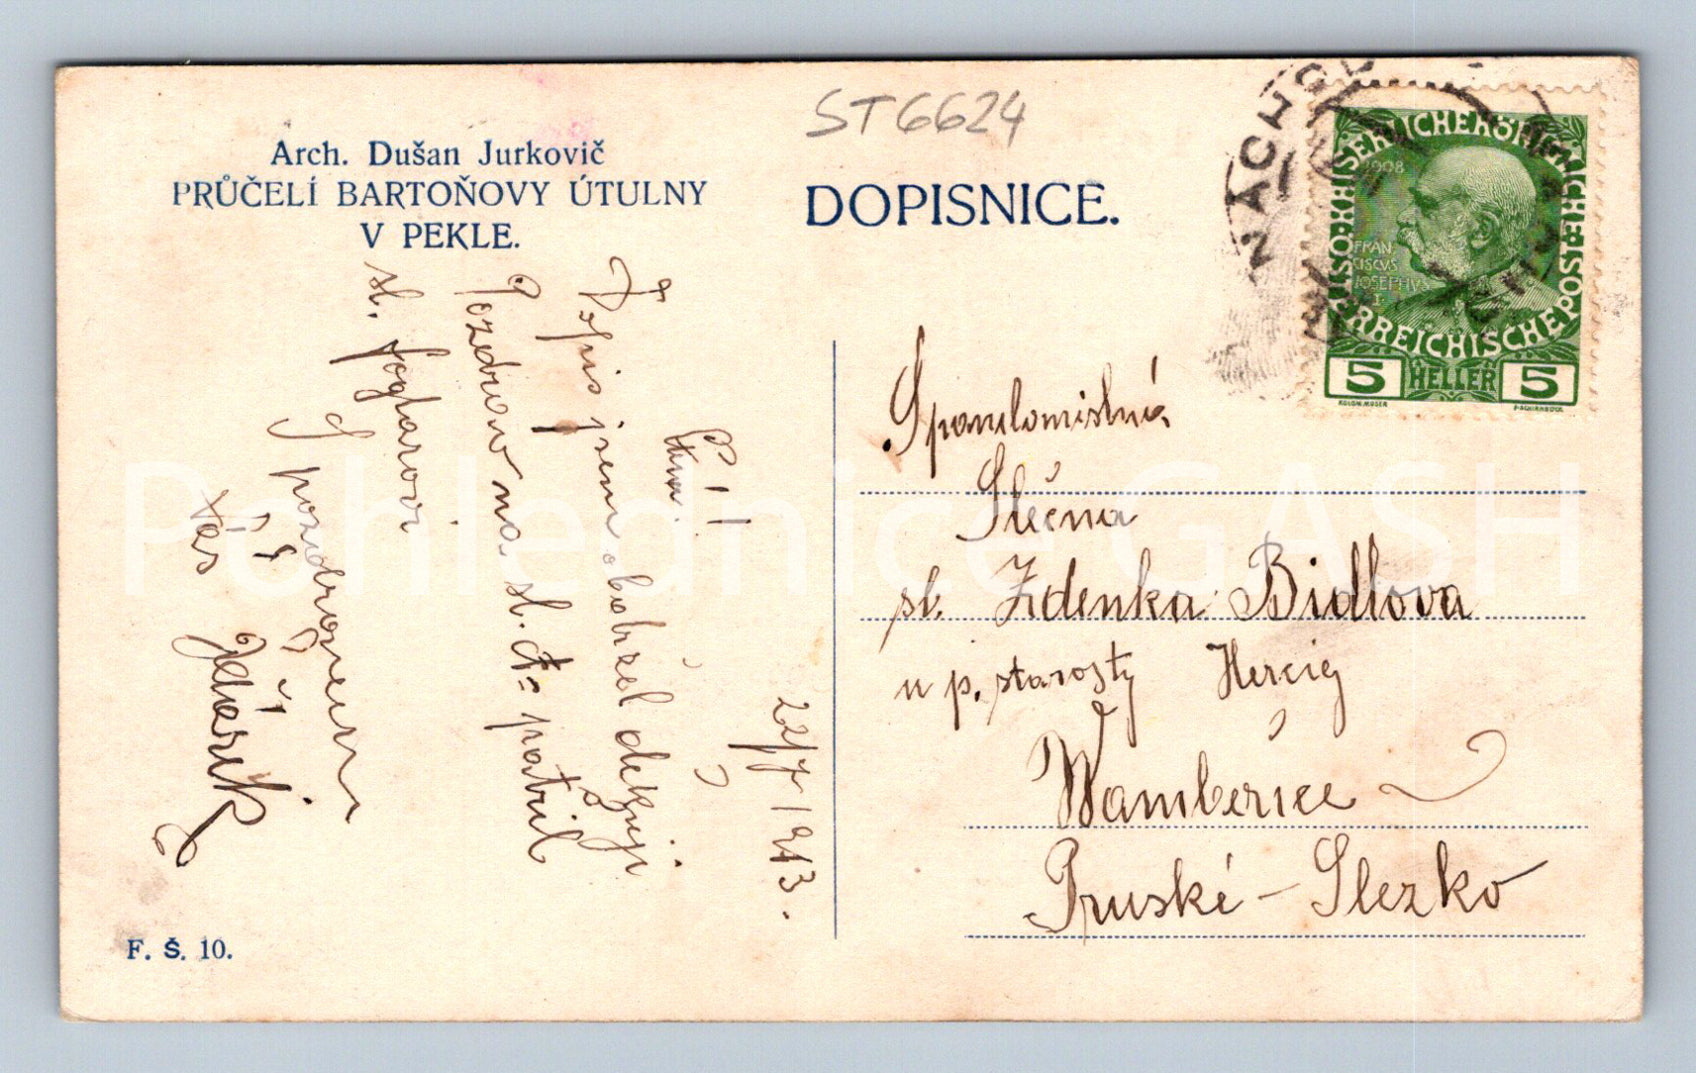 Arch. Dušan Jurkovič
PRŮČELÍ BARTOŇOVY ÚTULNY
V PEKLE.
ST6624
DOPISNICE.
NÁCHOD
KAISERLICHE KÖNIGLICHE POST
ÖSTERREICHISCHE
1908
FRAN
CISCVS
IOSEPHVS
I.
5 HELLER 5
KOLOM. MOSER
F. SCHIRNBÖCK
22/7 1913.
Dopis jsem obdržel děkuji
Pozdrav na sl.
patřil
sl. Foglarovi
S pozdravem
Váš
Spanilomislná
Slečna
sl. Zdenka Bidlova
u p. starosty Hercig
Wamberice
Pruské - Slezko
F. Š. 10.
Pohlednice GASH